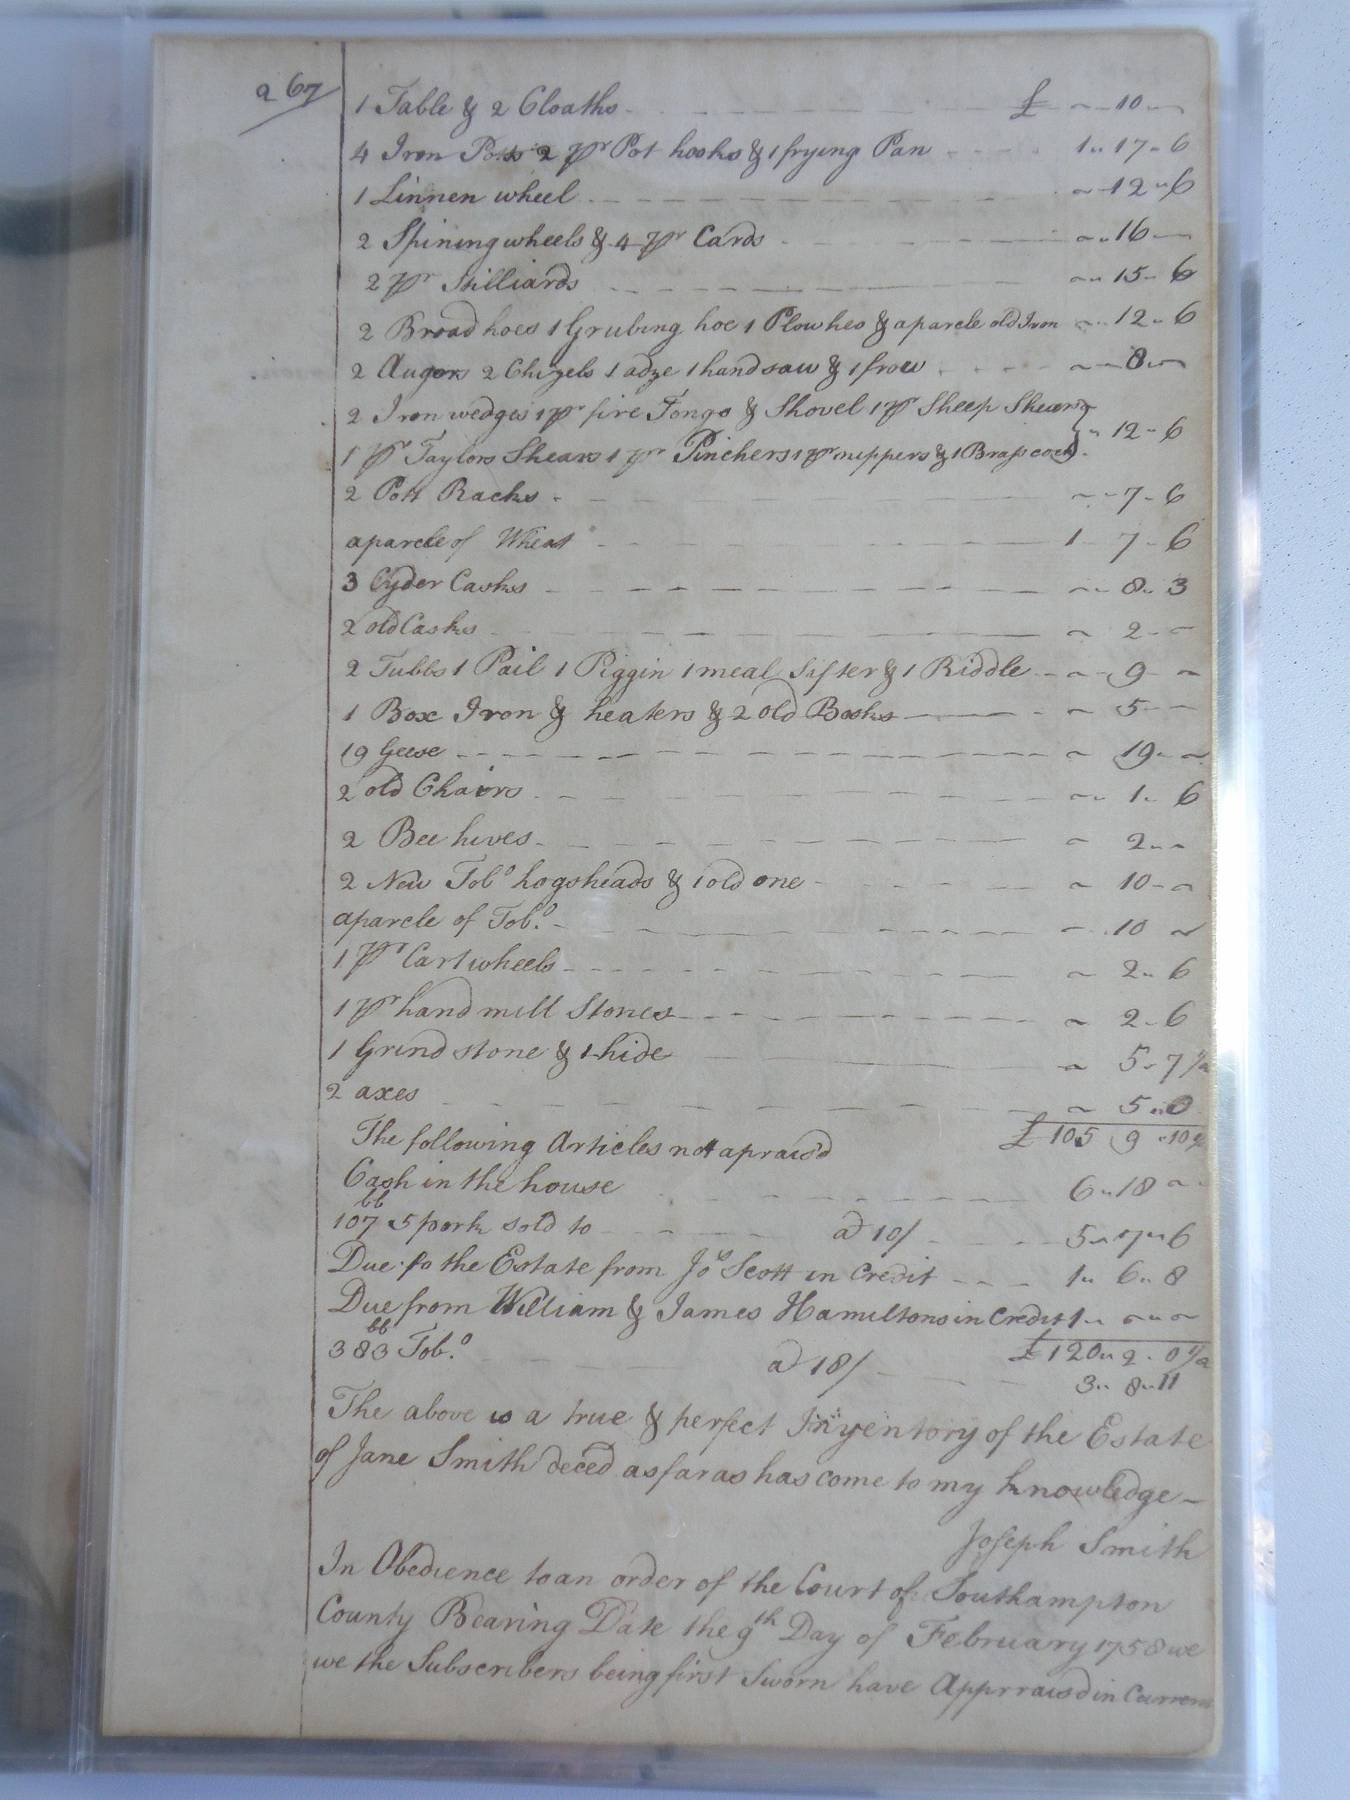 267
1 Table & 2 Cloaths - - - £ ~ 10 ~
4 Iron Potts 2 pr Pot hooks & 1 frying Pan - - - 1 „ 17 „ 6
1 Linnen wheel - - - ~ 12 „ 6
2 Spining wheels & 4 pr Cards - - - ~ „ 16 —
2 pr Stilliards - - - ~ „ 15 „ 6
2 Broad hoes 1 Grubing hoe 1 Plow heo & aparcle old Iron ~ „ 12 „ 6
2 Augors 2 Chizels 1 adze 1 hand saw & 1 frow - - - ~ 8 „ ~
2 Iron wedges 1 pr fire Tongs & Shovel 1 pr Sheep Shears
1 pr Taylors Shears 1 pr Pinchers 1 pr nippers & 1 Brass cock } „ 12 „ 6
2 Pott Racks - - - ~ „ 7 „ 6
aparcle of Wheat - - - 1 „ 7 „ 6
3 Cyder Casks - - - ~ „ 8 „ 3
2 old Casks - - - ~ 2 „ ~
2 Tubbs 1 Pail 1 Piggin 1 meal Sifter & 1 Riddle - - ~ „ 9 „ ~
1 Box Iron & heaters & 2 old Books - - - ~ 5 „ —
19 Geese - - - ~ 19 „ ~
2 old Chairs - - - ~ „ 1 „ 6
2 Bee hives - - - ~ 2 „ ~
2 New Tobo hogsheads & 1 old one - - - ~ 10 „ ~
aparcle of Tobo. - - - ~ 10 ~
1 pr Cart wheels - - - ~ 2 „ 6
1 pr hand mill Stones - - - ~ 2 „ 6
1 Grind stone & 1 hide - - - ~ 5 „ 7 1/2
2 axes - - - ~ 5 „ 0
The following Articles nott apraisd £ 105 „ 9 „ 10 1/2
Cash in the house - - - 6 „ 18 ~
107 lb 5 pork sold to - - - a 10/ - - - 5 „ 7 „ 6
Due to the Estate from Jos Scott in Credit - - - 1 „ 6 „ 8
Due from William & James Hamiltons in Credit 1 „ ~ „ ~
383 lb Tobo. - - - a 18/ £ 120 „ 2 „ 0 1/2
3 „ 8 „ 11
The above is a true & perfect Inventory of the Estate
of Jane Smith deced as far as has come to my knowledge —
Joseph Smith
In Obedience to an order of the Court of Southampton
County Bearing Date the 9th Day of February 1758 we
we the Subscribers being first Sworn have Apprraisd in Current